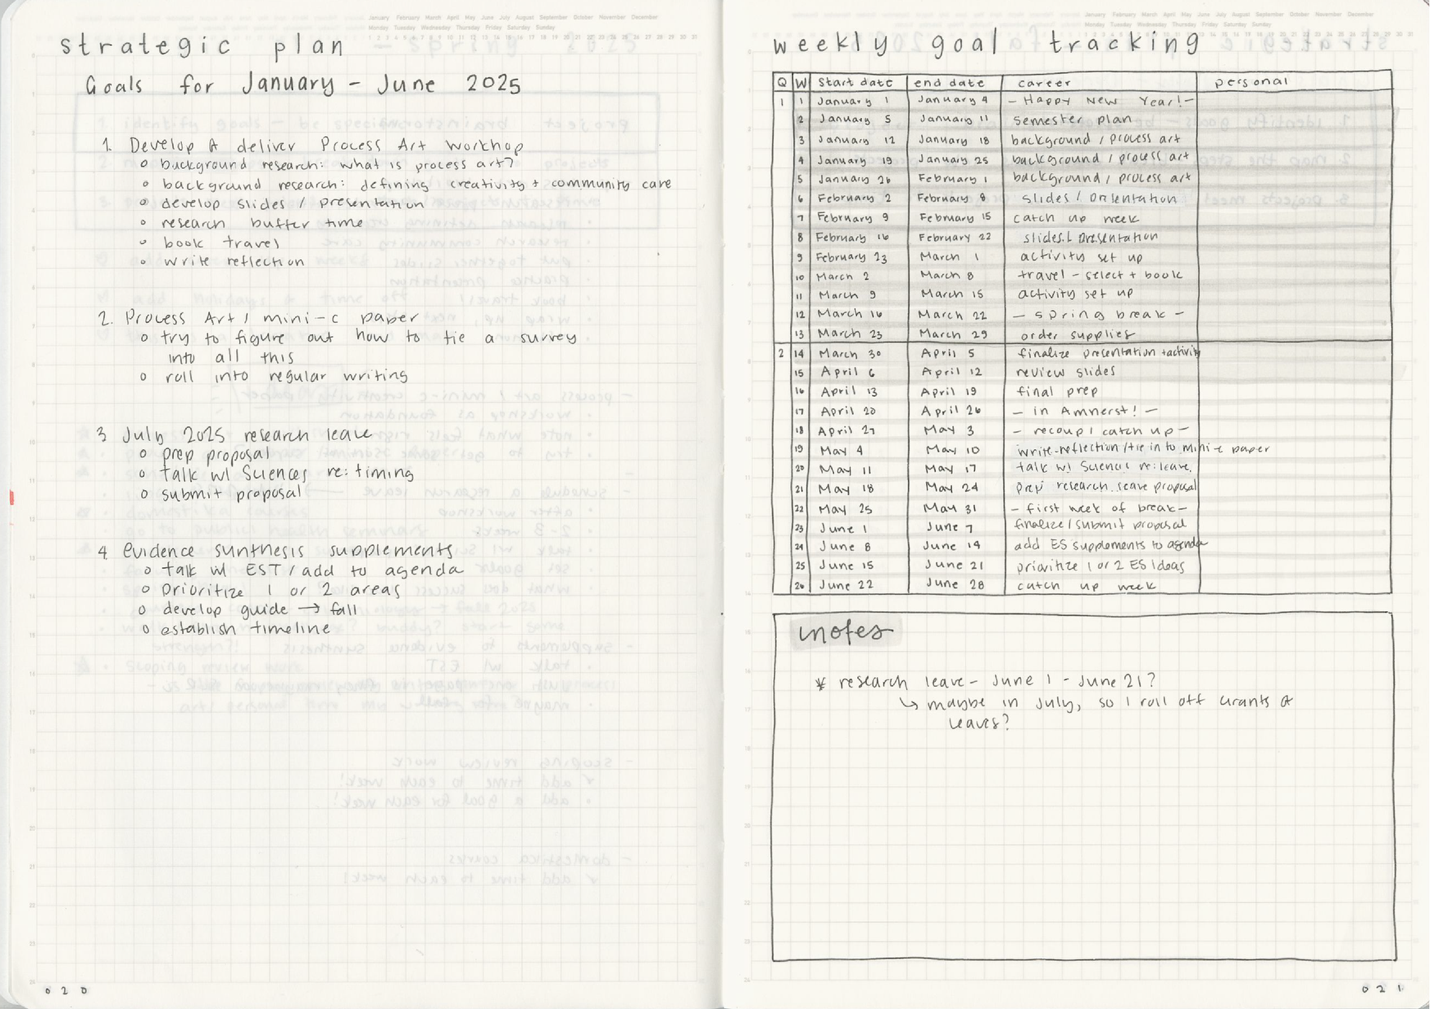 January February March April May June July August September October November December
Monday Tuesday Wednesday Thursday Friday Saturday Sunday
1 2 3 4 5 6 7 8 9 10 11 12 13 14 15 16 17 18 19 20 21 22 23 24 25 26 27 28 29 30 31
strategic plan
Goals for January - June 2025
1. Develop & deliver Process Art Workshop
o background research: what is process art?
o background research: defining creativity + community care
o develop slides / presentation
o research buffer time
o book travel
o write reflection
2. Process Art / mini-c paper
o try to figure out how to tie a survey
into all this
o roll into regular writing
3 July 2025 research leave
o prep proposal
o talk w/ Sciences re: timing
o submit proposal
4 evidence synthesis supplements
o talk w/ EST / add to agenda
o prioritize 1 or 2 areas
o develop guide → fall
o establish timeline
020
January February March April May June July August September October November December
Monday Tuesday Wednesday Thursday Friday Saturday Sunday
weekly goal tracking
Q W start date end date career personal
1 1 January 1 January 4 - Happy New Year! -
2 January 5 January 11 semester plan
3 January 12 January 18 background / process art
4 January 19 January 25 background / process art
5 January 26 February 1 background / process art
6 February 2 February 8 slides / presentation
7 February 9 February 15 catch up week
8 February 16 February 22 slides / presentation
9 February 23 March 1 activity set up
10 March 2 March 8 travel - select + book
11 March 9 March 15 activity set up
12 March 16 March 22 - spring break -
13 March 23 March 29 order supplies
2 14 March 30 April 5 finalize presentation + activity
15 April 6 April 12 review slides
16 April 13 April 19 final prep
17 April 20 April 26 - in Amherst! -
18 April 27 May 3 - recoup / catch up -
19 May 4 May 10 write reflection / tie in to mini-c paper
20 May 11 May 17 talk w/ Science re: leave
21 May 18 May 24 prep research leave proposal
22 May 25 May 31 - first week of break -
23 June 1 June 7 finalize / submit proposal
24 June 8 June 14 add ES supplements to agenda
25 June 15 June 21 prioritize 1 or 2 ES ideas
26 June 22 June 28 catch up week
notes
* research leave - June 1 - June 21?
↳ maybe in July, so I roll off Grants &
leaves?
021